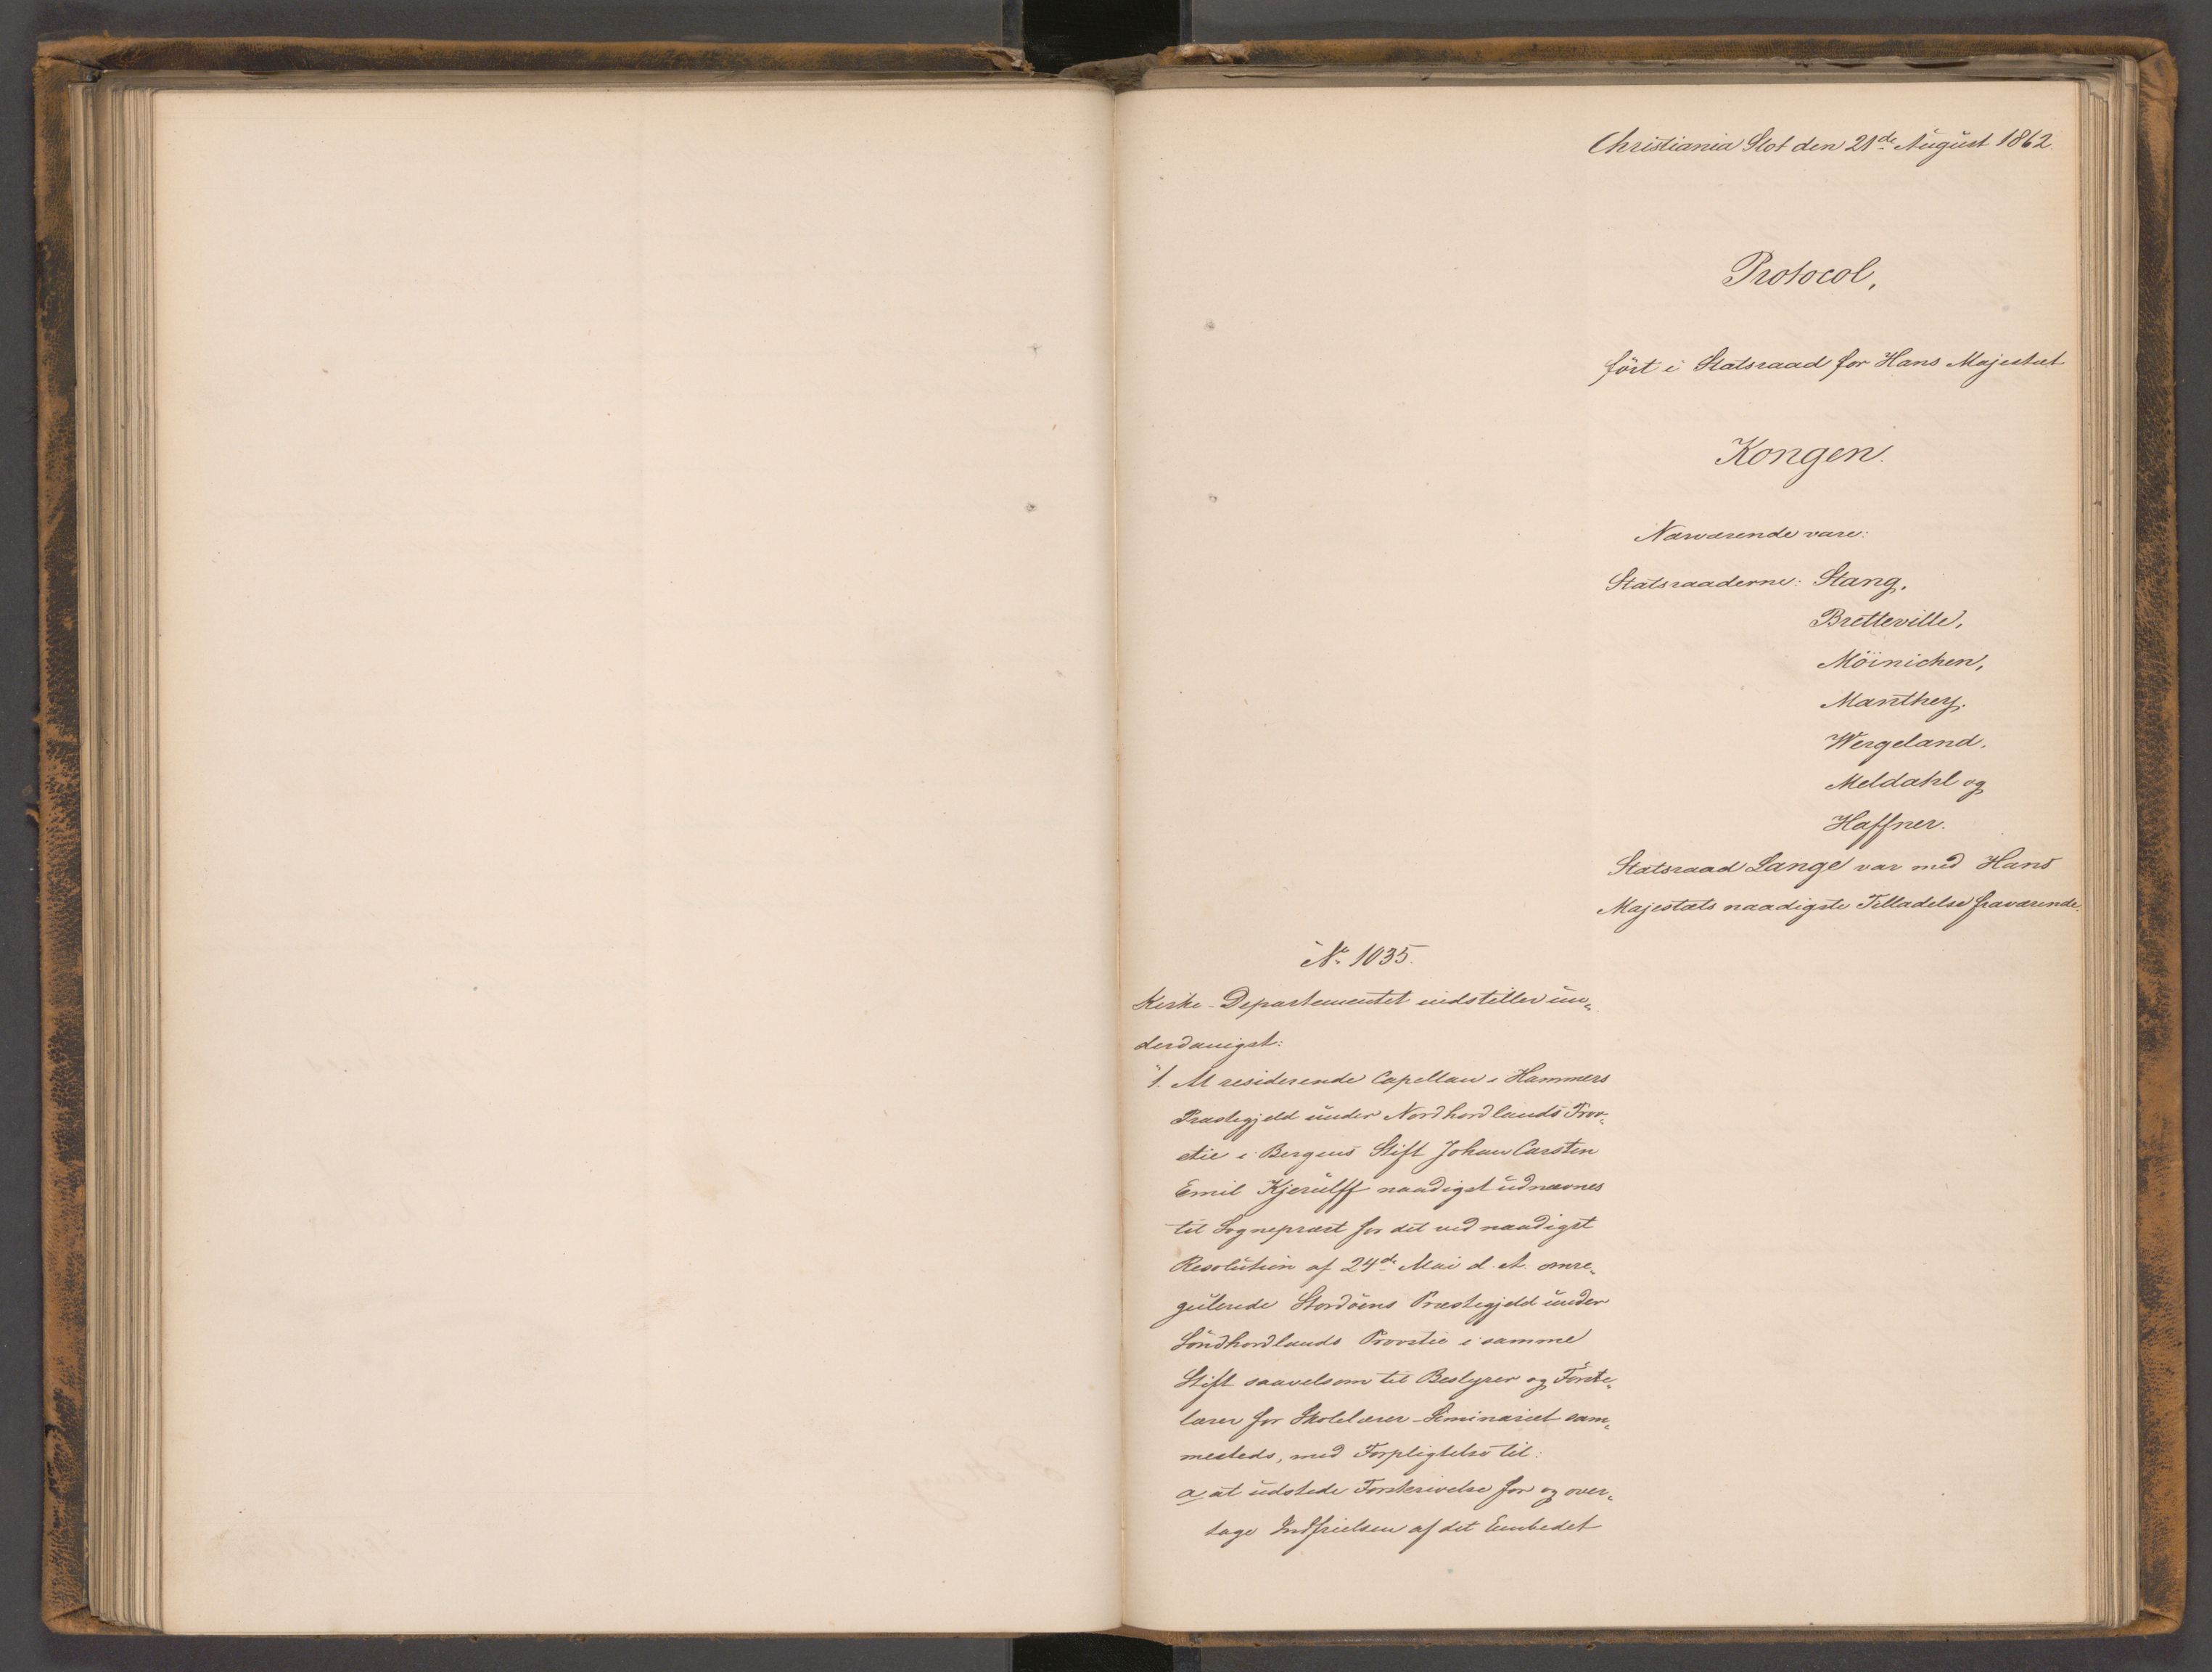 Christiania Slot den 21de August 1862.
Protocol,
ført i Statsraad for Hans Majestæt
Kongen.
Nærværende vare:
Statsraaderne: Stang,
Bretteville,
Möinichen,
Manthey,
Wergeland,
Meldahl og
Haffner.
Statsraad Lange var med Hans
Majestæts naadigste Tilladelse fraværende.
No 1035.
Kirke-Departementet indstiller un„
derdanigst:
"1. At residerende Capellan i Hammers
Præstegjeld under Nordhordlands Prov„
stie i Bergens Stift Johan Carsten
Emil Kjerulff naadigst udnævnes
til Sognepræst for det ved naadigst
Resolution af 24de Mai d. A. omre„
gulerede Stordöens Præstegjeld under
Söndhordlands Provstie i samme
Stift saavelsom til Bestyrer og Förste„
lærer for Skolelærer-Seminariet sam„
mesteds, med Forpligtelse til:
a, at udstede Forskrivelse for og over„
tage Indfrielsen af det Embedet